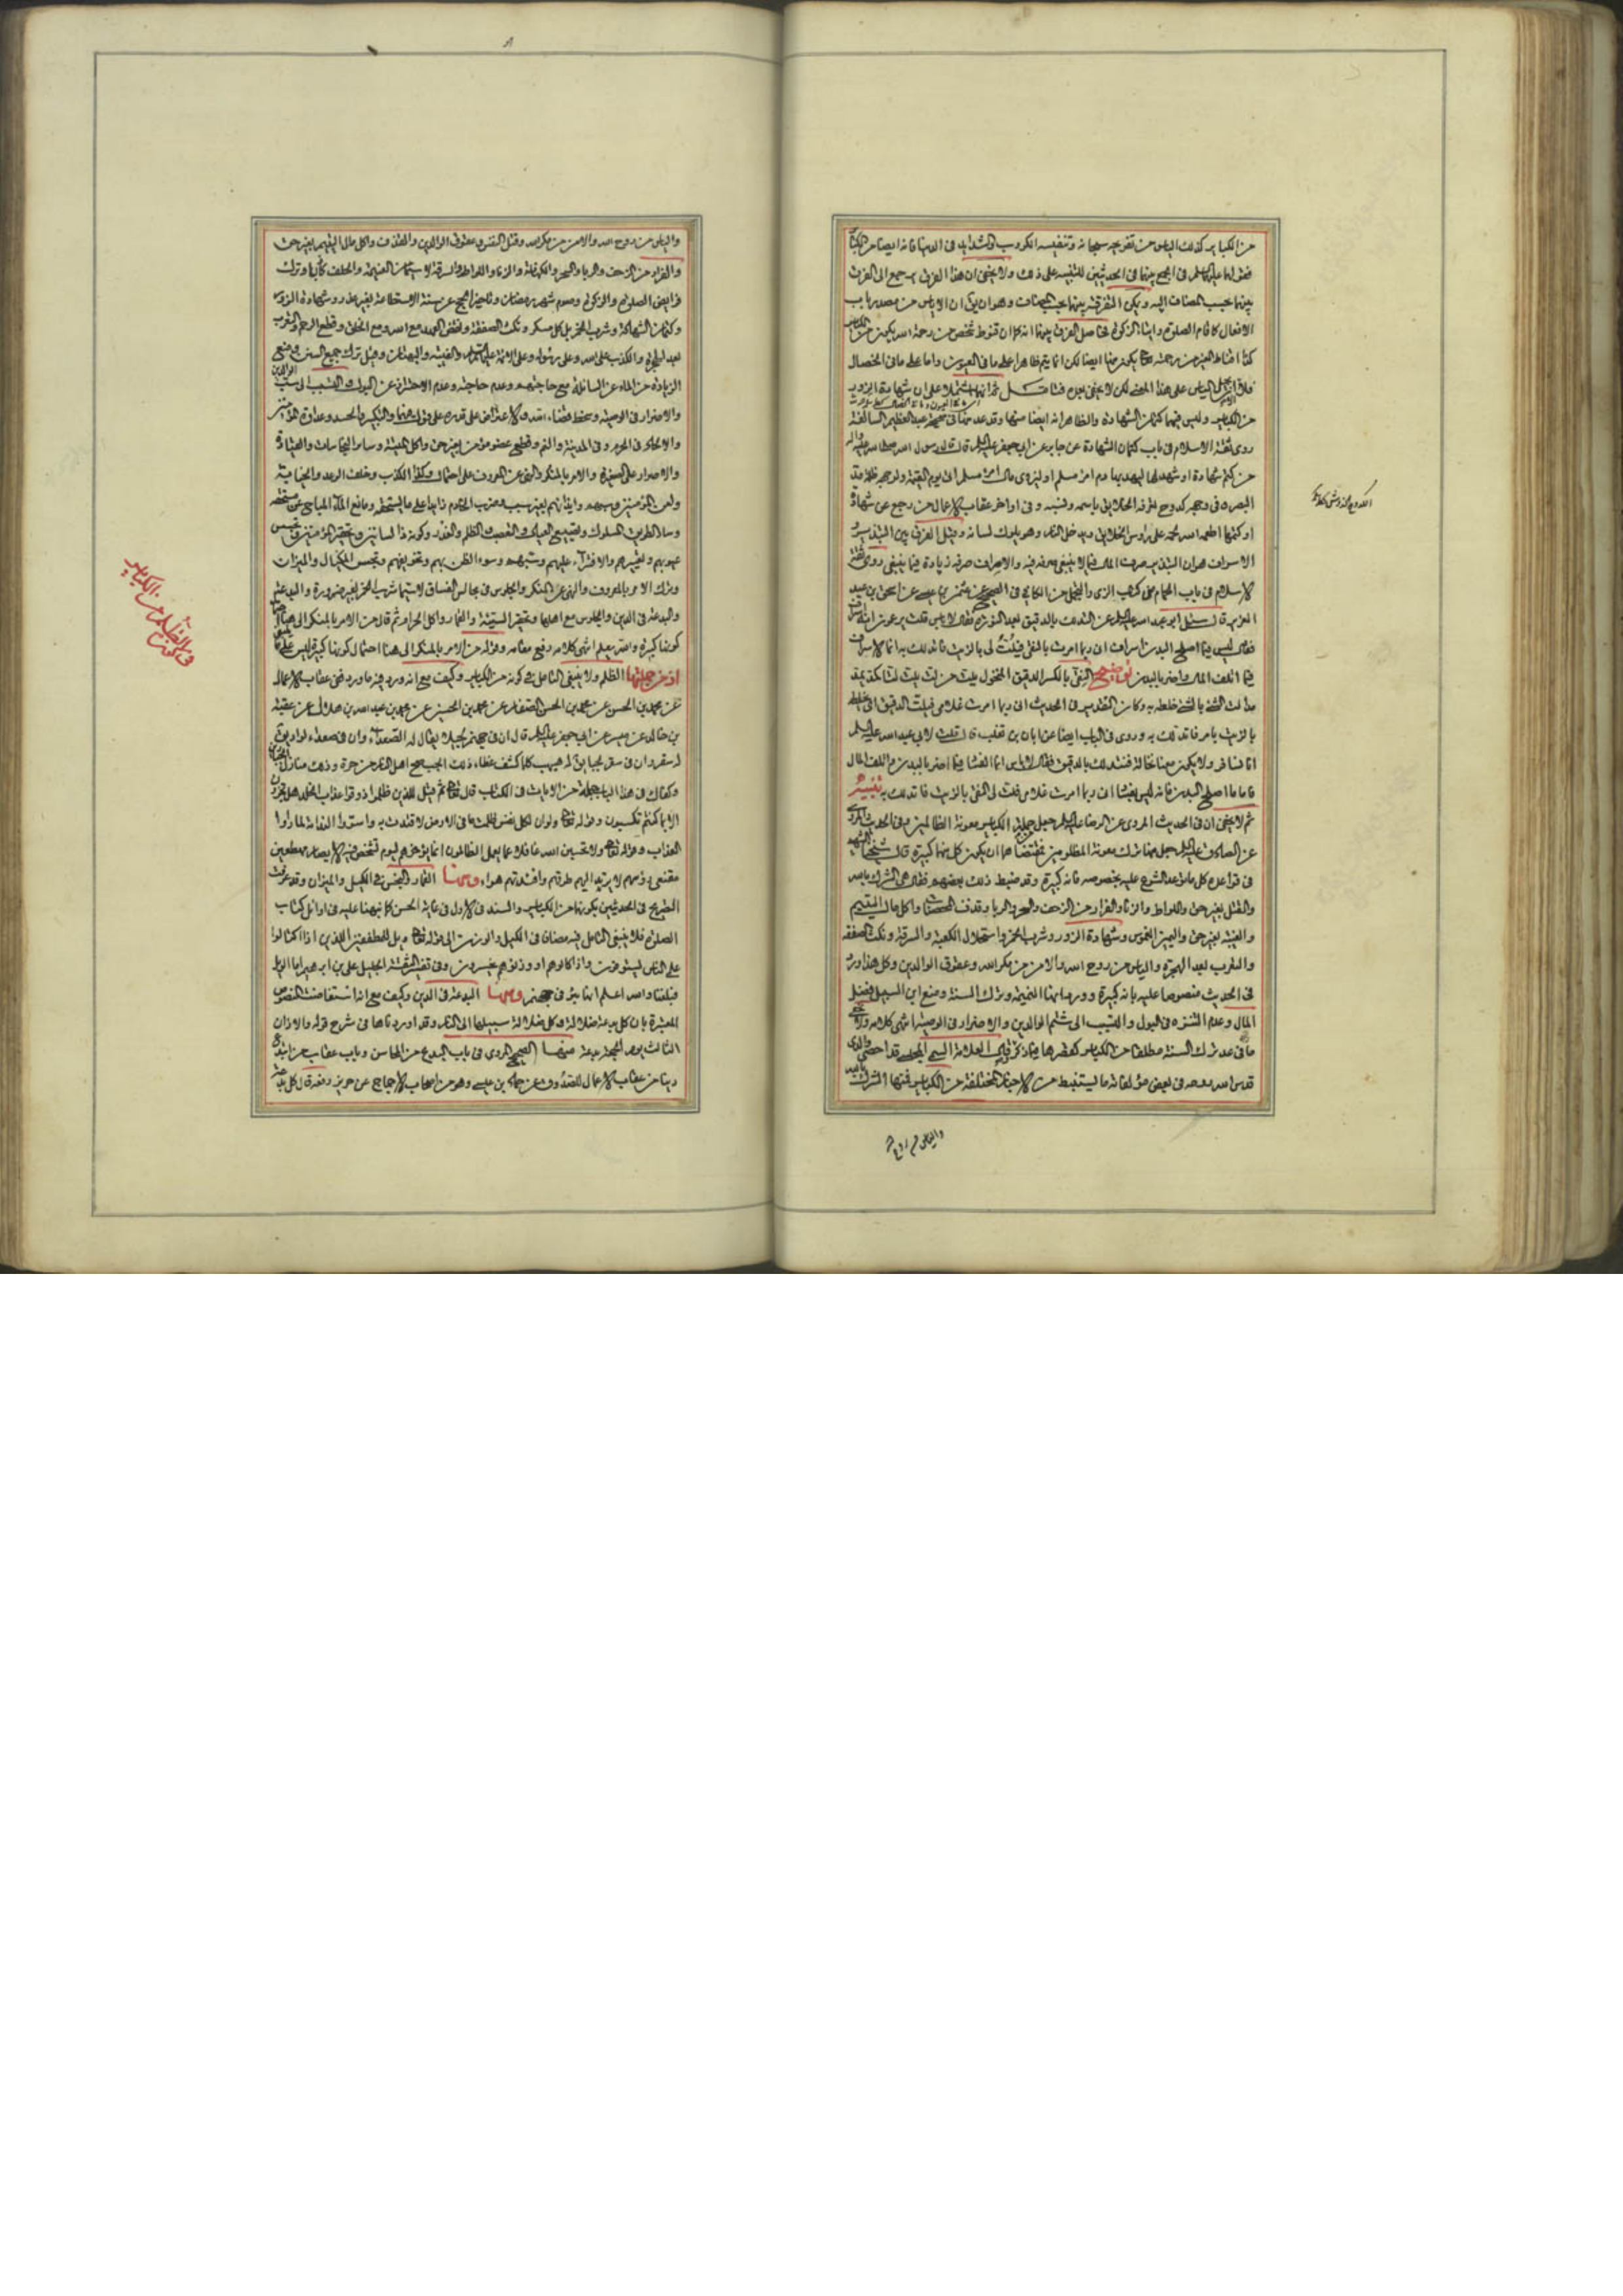 من الكباير كذلك الياس من تفريجه سبحانه وتنفيسه الكروب والشدايد في الدنيا فانه ايضا من الكباير
عليه السلم في الجمع بينهما في الحديثين للتنبيه على ذلك ولا يخفى ان هذا الفرق يرجع الى الفرق
بينهما بحسب المضاف اليه ويمكن التفرقة بينهما بحسب وهو ان الاياس من مصدر باب
الافعال كاقام الصلوة وايتاء الزكوة فحاصل الفرق بينهما انه كما ان قنوط شخص من رحمة الله يكون من الكباير
كذا اقناط الغير من رحمته تعالى يكون منها ايضا لكن انما يتم ظاهرا على ما في العيون واما على ما في الخصال
فلا الياس على هذا المعنى لكن لا يخفى فتامل ثم انهما اشتملا على ان شهادة الزور
من الكباير وليس فيهما كتمان الشهادة والظاهر انه ايضا منها وقد عد منها في صحيحة عبد العظيم السالفة
روى ثقة الاسلام في باب كتمان الشهادة عن جابر عن ابي جعفر عليه السلم قال قال رسول الله صلى الله عليه واله
من كتم شهادة او شهد بها ليهدر بها دم امرئ مسلم او ليزوي مال امرئ مسلم اتى يوم القيمة ولوجهه ظلمة مد
البصر وفي وجهه كدوح تعرفه الخلايق باسمه ونسبه وفي اواخر عقاب الاعمال من رجع عن شهادة
او كتمها اطعمه الله لحمه على رؤس الخلايق ويدخل النار وهو يلوك لسانه وقيل الفرق بين التبذير و
الاسراف هو ان التبذير صرف المال فيما لا ينبغي صرفه فيه والاسراف صرفه زيادة فيما ينبغي روى ثقة
الاسلام في باب الحمام من كتاب الزي والتجمل من الكافي في الصحيح عن عن اسحق بن عبد
العزيز قال سئل ابو عبد الله عليه السلم عن التدلك بالدقيق بعد النورة فقال لا باس قلت يزعمون انه اسراف
فقال ليس فيما اصلح البدن اسراف اني ربما امرت بالنقي فيلت لي بالزيت فاتدلك به انما الاسراف
فيما اتلف المال واضر بالبدن توضيح النقي بالكسر الدقيق المنخول يلت من لت يلت لتا كمد يمد
مدا لت الشيء بالشيء خلطه به وكان التقدير في الحديث اني ربما امرت غلامي فيلت الدقيق اي يخلط
بالزيت بامر فاتدلك به وروى في الباب ايضا عن ابان بن تغلب قال قلت لابي عبد الله عليه السلم
انا نسافر ولا يكون معنا نخالة فنتدلك بالدقيق فقال لا باس انما الفساد فيما اضر بالبدن واتلف المال
فاما ما اصلح البدن فانه ليس بفساد اني ربما امرت غلامي فلت لي النقي بالزيت فاتدلك به تنبيه
ثم لا يخفى ان في الحديث المروي عن الرضا عليه السلم جعل من جملة الكباير معونة الظالمين وفي الحديث المروي
عن الصادق عليه السلم جعل منها ترك معونة المظلومين فمقتضاهما ان يكون كل منهما كبيرة قال شيخنا الشهيد
في قواعده كل ما توعد الشرع عليه بخصوصه فانه كبيرة وقد ضبط ذلك بعضهم فقال هي الشرك بالله
والقتل بغير حق واللواط والزنا والفرار من الزحف والسحر والربا وقذف المحصنات واكل مال اليتيم
والغيبة بغير حق واليمين الغموس وشهادة الزور وشرب الخمر واستحلال الكعبة والسرقة ونكث الصفقة
والتعرب بعد الهجرة والياس من روح الله والامن من مكر الله وعقوق الوالدين وكل هذا ورد
في الحديث منصوصا عليه بانه كبيرة وورد ايضا النميمة وترك السنة ومنع ابن السبيل فضل
المال وعدم التنزه في البول والتسبب الى شتم الوالدين والاضرار في الوصية انتهى كلامه ولا يخفى
ما في عد ترك السنة مطلقا من الكباير كغيرها مما ذكر العلامة السمي المجلسي قد احصى والدي
قدس الله روحه في بعض مؤلفاته ما يستنبط من الاخبار المختلفة من الكباير فمنها الشرك بالله
والياس من روح الله
والياس من روح الله والامن من مكر الله وقتل النفس وعقوق الوالدين والقذف واكل مال اليتيم بغير حق
والفرار من الزحف والربا والسحر والكهانة والزنا واللواط والسرقة لا سيما من الغنيمة والحلف كاذبا وترك
فرايض الصلوة والزكوة وصوم شهر رمضان وتاخير الحج عن سنة الاستطاعة بغير عذر وشهادة الزور
وكتمان الشهادة وشرب الخمر بل كل مسكر ونكث الصفقة ونقض العهد مع الله ومع الخلق وقطع الرحم والتعرب
بعد الهجرة والكذب على الله وعلى رسوله وعلى الائمة عليهم السلم والغيبة والبهتان وقيل ترك جميع السنن ومنع
الزيادة من الماء عن السابلة مع حاجتهم وعدم حاجته وعدم الاحتراز عن البول والتسبب الى سب الوالدين
والاضرار في الوصية وسخط قضاء الله والاعتراض على قدره على قول فيهما والتكبر والحسد وعداوة المؤمنين
والالحاد في الحرم وفي المدينة والنم وقطع عضو مؤمن بغير حق واكل الميتة وساير النجاسات والقيادة
والاصرار على الصغيرة والامر بالمنكر والنهي عن المعروف على احتمال وكذا الكذب وخلف الوعد والخيانة
ولعن المؤمنين وسبهم وايذائهم بغير سبب وضرب الخادم زايدا على ما يستحقه ومانع الماء المباح عن مستحقه
وساد الطريق المسلوك وتضييع العيال والتعصب والظلم والغدر وكونه ذا لسانين وتحقير المؤمنين وتجسس
عيوبهم وتعييرهم والافتراء عليهم وسبهم وسوء الظن بهم وتخويفهم وبخس المكيال والميزان
وترك الامر بالمعروف والنهي عن المنكر والجلوس في مجالس الفساق لا سيما شرب الخمر لغير ضرورة والبدعة
والبدعة في الدين والجلوس مع اهلها وتحقير السيئة والقمار واكل الحرام ثم قال من الامر بالمنكر الى هنا احتمال
كونها كبيرة والله يعلم انتهى كلامه رفع مقامه وقوله من الامر بالمنكر الى هنا احتمال كونها كبيرة ليس على ما ينبغي
اذ من جملتها الظلم ولا ينبغي التامل في كونه من الكباير وكيف مع انه ورد فيه ما ورد ففي عقاب الاعمال
عن محمد بن الحسن عن محمد بن الحسن الصفار عن محمد بن الحسين عن محمد بن عبد الله بن هلال عن عقبة
بن خالد عن ميسر عن ابي جعفر عليه السلم قال ان في جهنم لجبلا يقال له الصعداء وان في صعداء لواديا
له سقر وان في سقر لجبا يقال له هبهب كلما كشف غطاء ذلك الجب ضج اهل النار من حره وذلك منازل الجبارين
وكفاك في هذا الباب جملة من الايات في الكتاب قال تعالى ثم قيل للذين ظلموا ذوقوا عذاب الخلد هل تجزون
الا بما كنتم تكسبون وقوله تعالى ولو ان لكل نفس ظلمت ما في الارض لافتدت به واسروا الندامة لما راوا
العذاب وقوله تعالى ولا تحسبن الله غافلا عما يعمل الظالمون انما يؤخرهم ليوم تشخص فيه الابصار مهطعين
مقنعي رؤسهم لا يرتد اليهم طرفهم وافئدتهم هواء ومنها القمار والبخس في الكيل والميزان وقد عرفت
التصريح في الحديثين بكونهما من الكباير والسند في الاول في غاية الحسن كما نبهنا عليه في اوائل كتاب
الصلوة فلا ينبغي التامل فيه مضافا في الكيل والوزن الى قوله تعالى ويل للمطففين الذين اذا اكتالوا
على الناس يستوفون واذا كالوهم او وزنوهم يخسرون وفي تفسير الثقة الجليل علي بن ابرهيم اما الويل
فبلغنا والله اعلم انها بئر في جهنم ومنها البدعة في الدين وكيف مع انه استفاضت النصوص
المعتبرة بان كل بدعة ضلالة وكل ضلالة سبيلها الى النار وقد اوردناها في شرح قوله والاذان
الثالث يوم الجمعة بدعة منها الصحيح المروي في باب البدع من المحاسن وباب عقاب من ابتدع
دينا من عقاب الاعمال للصدوق عن حماد بن عيسى وهو من اصحاب الاجماع عن حريز رفعه قال كل بدعة
في ان الظلم من الكباير